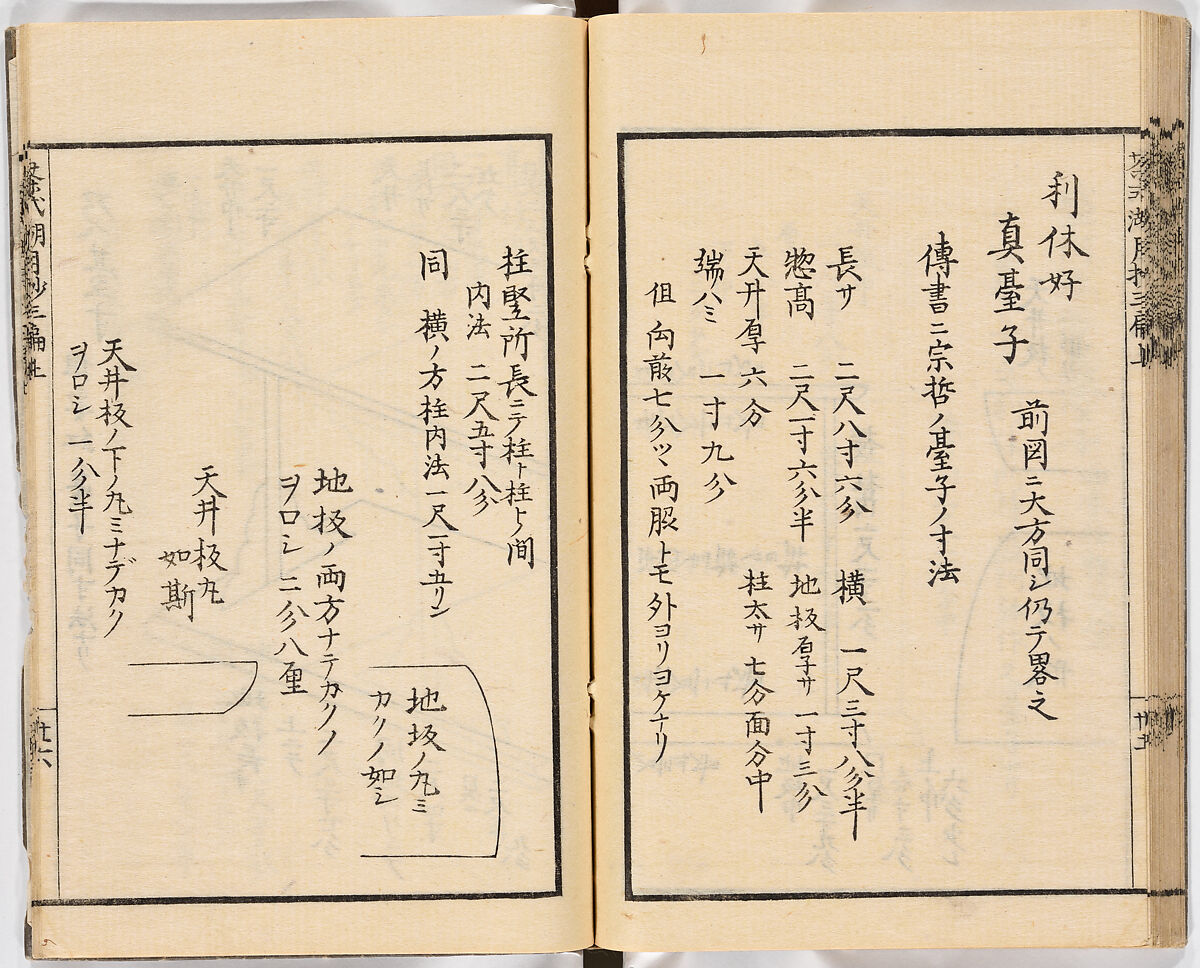 利休好
真臺子
前図ニ大方同シ仍テ畧之
傳書ニ宗哲ノ臺子ノ寸法
長サ 二尺八寸六分 横 一尺三寸八分半
惣髙 二尺一寸六分半 地板厚サ 一寸三分
天井厚六分 柱太サ 七分面分中
端ハミ 一寸九分
但 向前七分ツヽ両服トモ外ヨリヨケナリ
廿五
柱竪所長ニテ柱ト柱トノ間
内法 二尺五寸八分
同 横ノ方柱内法一尺一寸五リン
地板ノ両方ナテカクノ
ヲロシ二分八厘
地板ノ丸ミ
カクノ如シ
天井板丸
如斯
天井板ノ下ノ丸ミナデカク
ヲロシ一分半
廿六